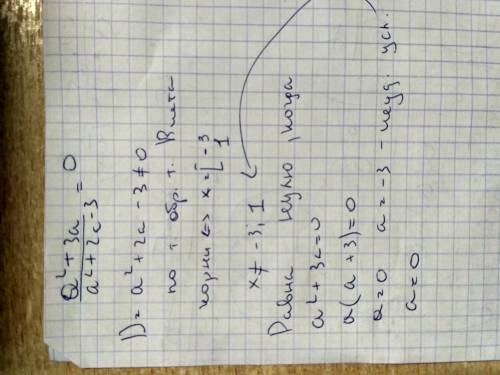 a² + 3a / a² + 2a - 3 = 0
D = a² + 2a - 3 ≠ 0
по т обр. т. Виета
корни <=> x = [ -3 1
x ≠ -3; 1
Равна нулю, когда
a² + 3a = 0
a(a + 3) = 0
a = 0 a = -3 - неуд. усл.
a = 0